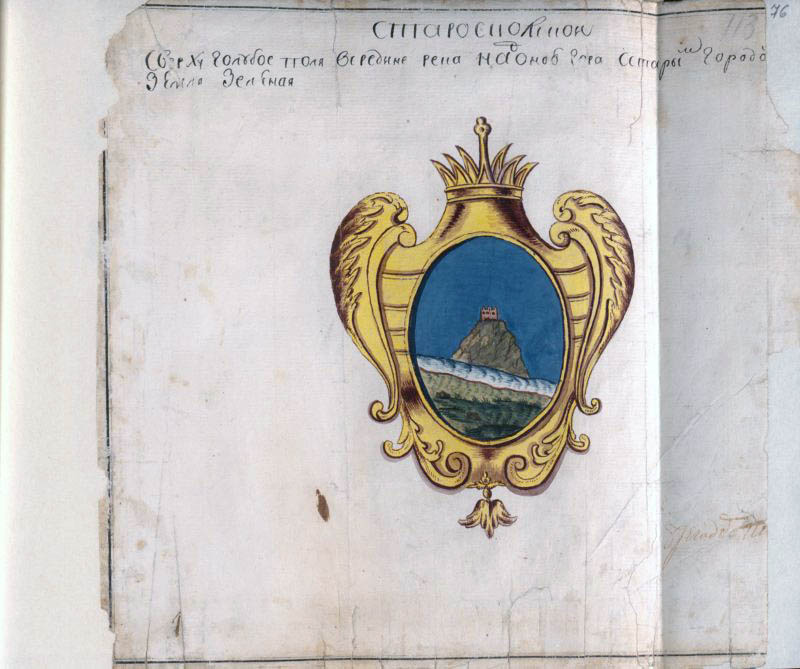 76
113
СТАРОСКОЛСКОИ
Сверху голубое поля всредине река надоною гора Старыи городъ
Земля Зеленая